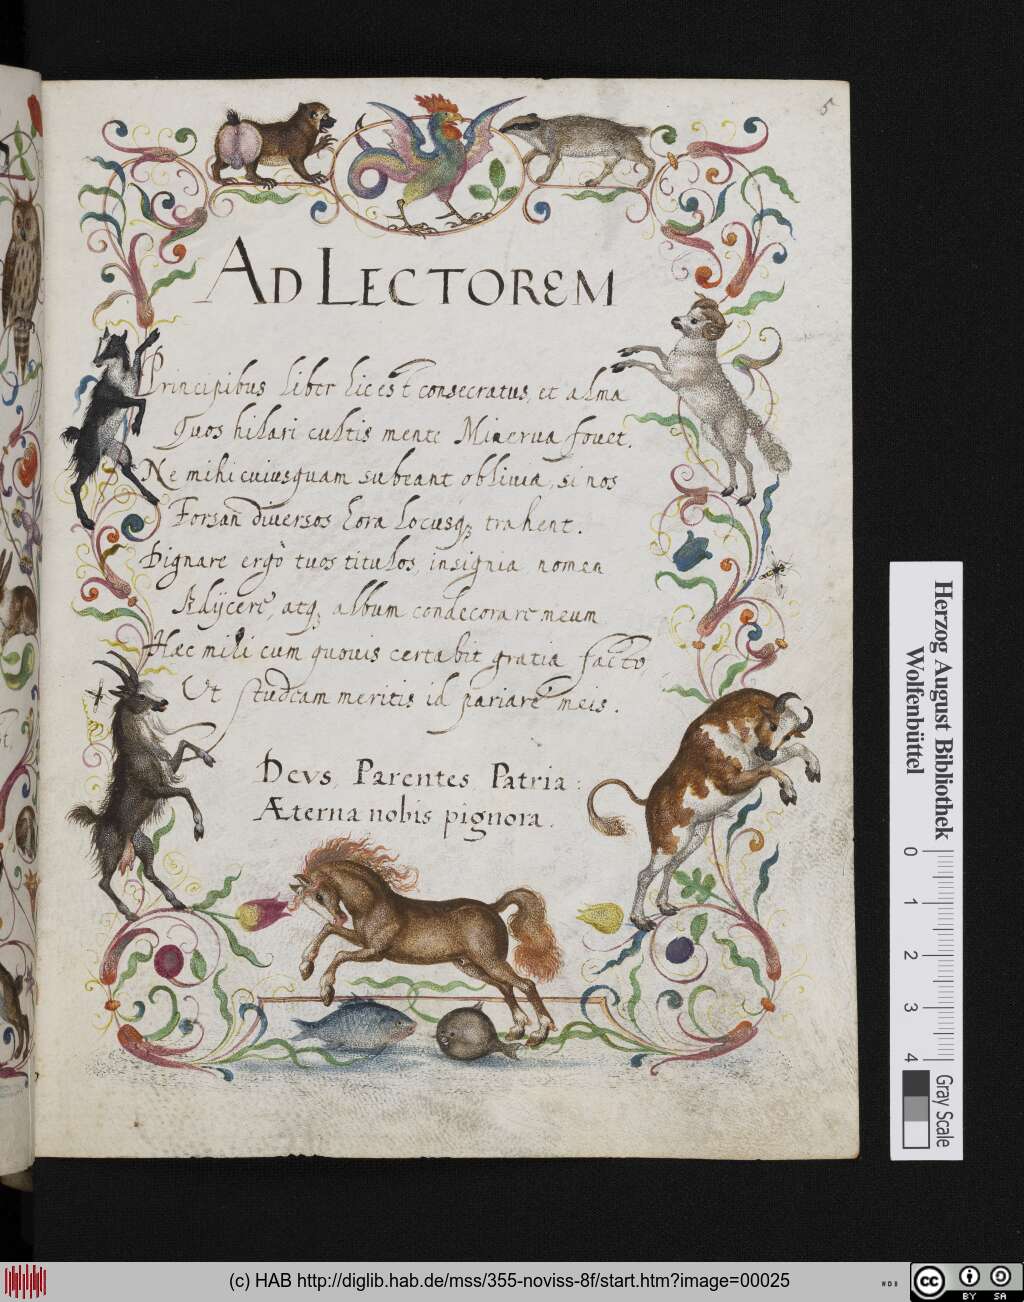 5
AD LECTOREM
Principibus liber hic est consecratus, et alma
Quos hilari cultis mente Minerva fovet.
Ne mihi cuiusquam subeant oblivia, si nos
Forsan diversos hora locusq; trahent.
Dignare ergò tuos titulos, insignia, nomen
Adijcere, atq; album condecorare meum
Haec mihi cum quovis certabit gratia facto,
Ut studeam meritis id pariare meis.
Devs, Parentes, Patria:
Æterna nobis pignora.
Herzog August Bibliothek
Wolfenbüttel
0 1 2 3 4
Gray Scale
(c) HAB http://diglib.hab.de/mss/355-noviss-8f/start.htm?image=00025
WDB
cc BY SA